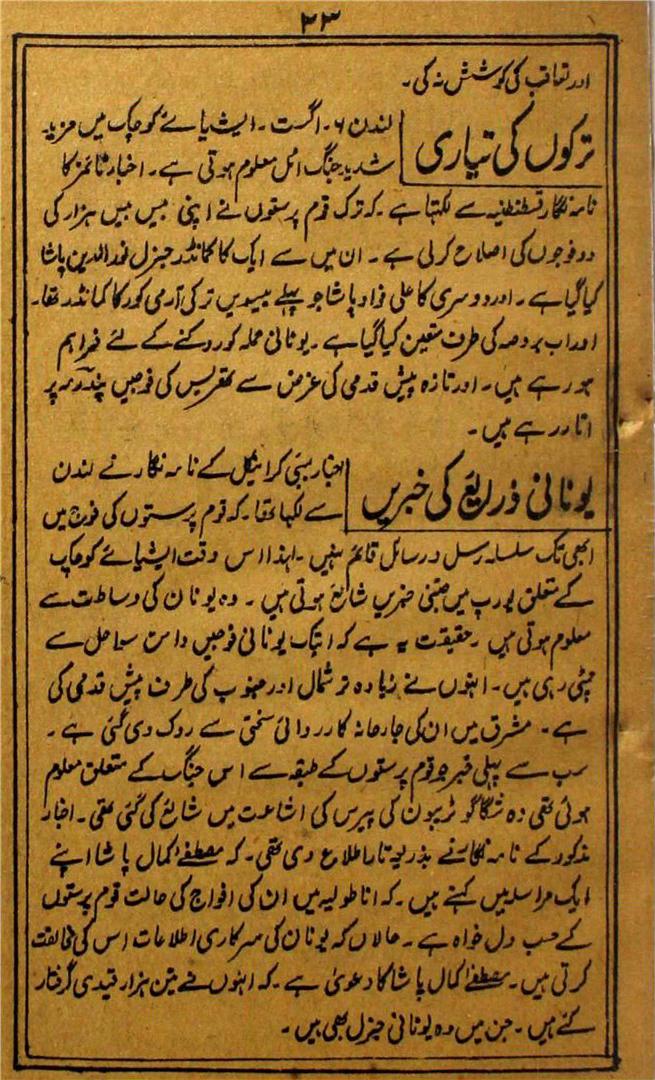 ۲۳
اور تعاقب کی کوشش نہ کی۔
ترکوں کی تیاری
لندن ۶۔ اگست۔ ایشیائے کوچک میں مزید
شدید جنگ اٹل معلوم ہوتی ہے۔ اخبار ٹائمز کا
نامہ نگار قسطنطنیہ سے لکھتا ہے۔ کہ ترک قوم پرستوں نے اپنی بیس بیس ہزار کی
دو فوجوں کی اصلاح کر لی ہے۔ ان میں سے ایک کا کمانڈر جنرل نور الدین پاشا
کیا گیا ہے۔ اور دوسری کا علی فواد پاشا جو پہلے بیسویں ترکی آرمی کور کا کمانڈر تھا۔
اور اب بروصہ کی طرف متعین کیا گیا ہے۔ یونانی حملہ کو روکنے کے لئے فراہم
ہو رہے ہیں۔ اور تازہ پیش قدمی کی غرض سے تھریس کی فوجیں پنڈرمہ پر
اتار رہے ہیں۔
یونانی ذرایع کی خبریں
اخبار بمبئی کرانیکل کے نامہ نگار نے لندن
سے لکھا تھا۔ کہ قوم پرستوں کی فوج میں
ابھی تک سلسلہ رسل و رسائل قائم نہیں۔ لہذا اس وقت ایشیائے کوچک
کے متعلق یورپ میں جتنی خبریں شایع ہوتی ہیں۔ وہ یونان کی وساطت سے
معلوم ہوتی ہیں۔ حقیقت یہ ہے کہ ابتک یونانی فوجیں دامن ساحل سے
چمٹی رہی ہیں۔ انہوں نے زیادہ تر شمال اور جنوب کی طرف پیش قدمی کی
ہے۔ مشرق میں ان کی جارحانہ کارروائی سختی سے روک دی گئی ہے۔
سب سے پہلی خبر جو قوم پرستوں کے طبقہ سے اس جنگ کے متعلق معلوم
ہوئی تھی وہ شکاگو ٹریبون کی پیرس کی اشاعت میں شائع کی گئی تھی۔ اخبار
مذکور کے نامہ نگار نے بذریعہ تار اطلاع دی تھی۔ کہ مصطفےٰ کمال پاشا اپنے
ایک مراسلہ میں کہتے ہیں۔ کہ اناطولیہ میں ان کی افواج کی حالت قوم پرستوں
کے حسب دل خواہ ہے۔ حالاں کہ یونان کی سرکاری اطلاعات اس کی مخالفت
کرتی ہیں۔ مصطفےٰ کمال پاشا کا دعویٰ ہے۔ کہ انہوں نے تین ہزار قیدی گرفتار
کئے ہیں۔ جن میں دو یونانی جنرل بھی ہیں۔